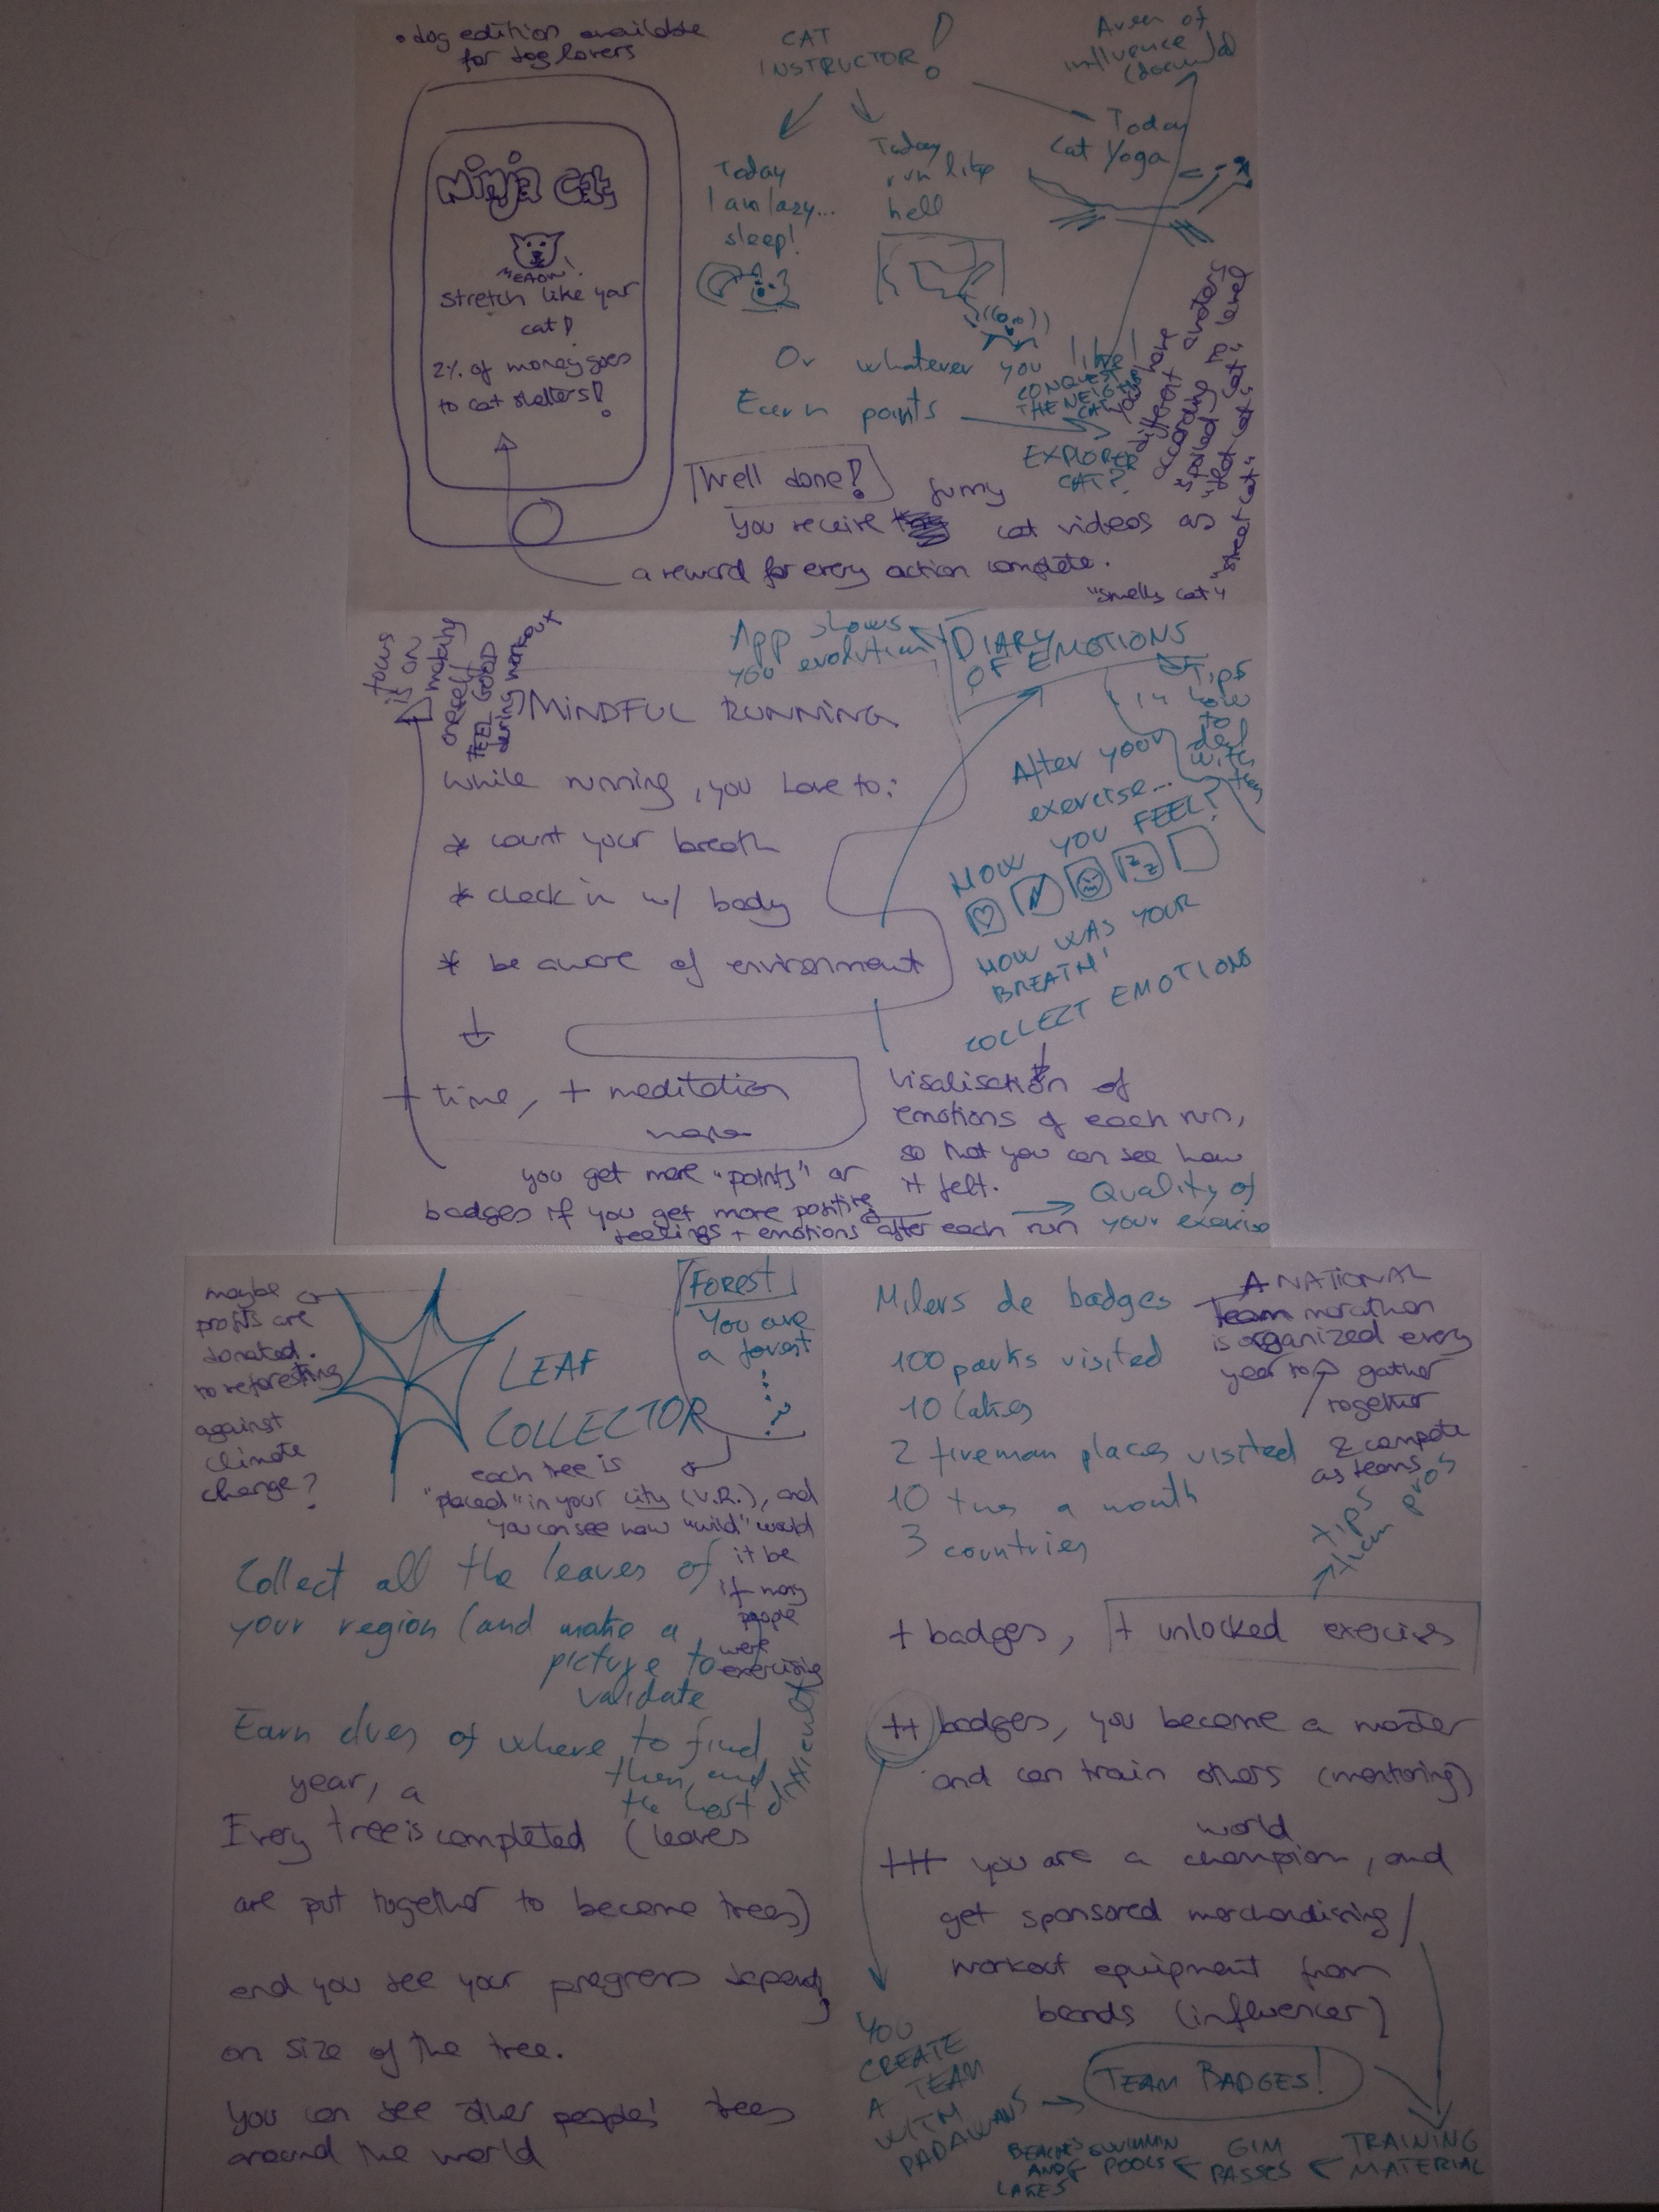 • dog edition available
for dog lovers
ninja cat
MEAOW!
stretch like your
cat!
2% of money goes
to cat shelters!
CAT
INSTRUCTOR!
Today
I am lazy...
sleep!
Today
run like
hell
Today
Cat Yoga
Area of
influence
Or whatever you like!
Earn points
CONQUEST
THE NEIGH
CAT
EXPLORER
CAT?
you have
different avatars
according to level
"spoiled cat"
"street cat"
"smelly cat"
Well done!
you receive funny
cat videos as
a reward for every action complete.
focus
is on
making
oneself
FEEL GOOD
during workout
MINDFUL RUNNING
while running, you have to:
* count your breath
* check in w/ body
* be aware of environment
+ time, + meditation
you get more "points" or
badges if you get more positive
feelings + emotions after each run
App shows
you evolution
DIARY
OF EMOTIONS
Tips
in how
to
deal
with
them
After your
exercise...
HOW YOU FEEL?
zz
HOW WAS YOUR
BREATH?
COLLECT EMOTIONS
visalisation of
emotions of each run,
so that you can see how
it felt.
Quality of
your exercise
maybe
profits are
donated
to reforesting
against
climate
change?
LEAF
COLLECTOR
FOREST
You are
a forest
each tree is
"placed" in your city (V.R.), and
you can see how "wild" would
it be
if many
people
were
exercising
Collect all the leaves of
your region (and make a
picture to
validate
Earn clues of where to find
them, and
the most difficult
year, a
Every tree is completed (leaves
are put together to become trees)
and you see your progress depending
on size of the tree.
You can see other peoples' trees
around the world
Milers de badges
100 parks visited
10 lakes
2 fireman places visited
10 tms a month
3 countries
A NATIONAL
Team marathon
is organized every
year to gather
together
& compete
as teams
tips
from pros
+ badges, + unlocked exercises
++ badges, you become a master
and can train others (mentoring)
world
+++ you are a champion, and
get sponsored merchandising /
workout equipment from
brands (influencer)
YOU
CREATE
A TEAM
WITH
PADAWANS
TEAM BADGES!
TRAINING
MATERIAL
GIM
PASSES
SWIMMIN
POOLS
BEACHES
AND
LAKES